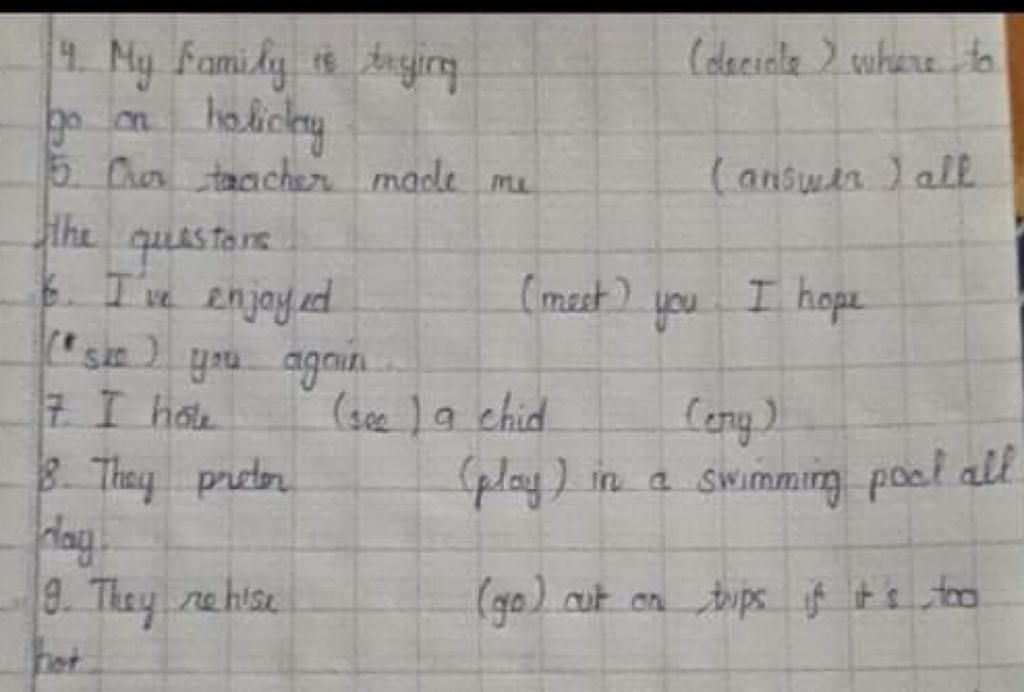 4. My family is trying (decide) where to
go on holiday.
5. Our teacher made me (answer) all
the questons.
6. I've enjoyed (meet) you. I hope
(see) you again.
7. I hate (see) a chid (cry)
8. They preter (play) in a swimming pool all
day.
9. They rehise (go) out on trips if it's too
hot